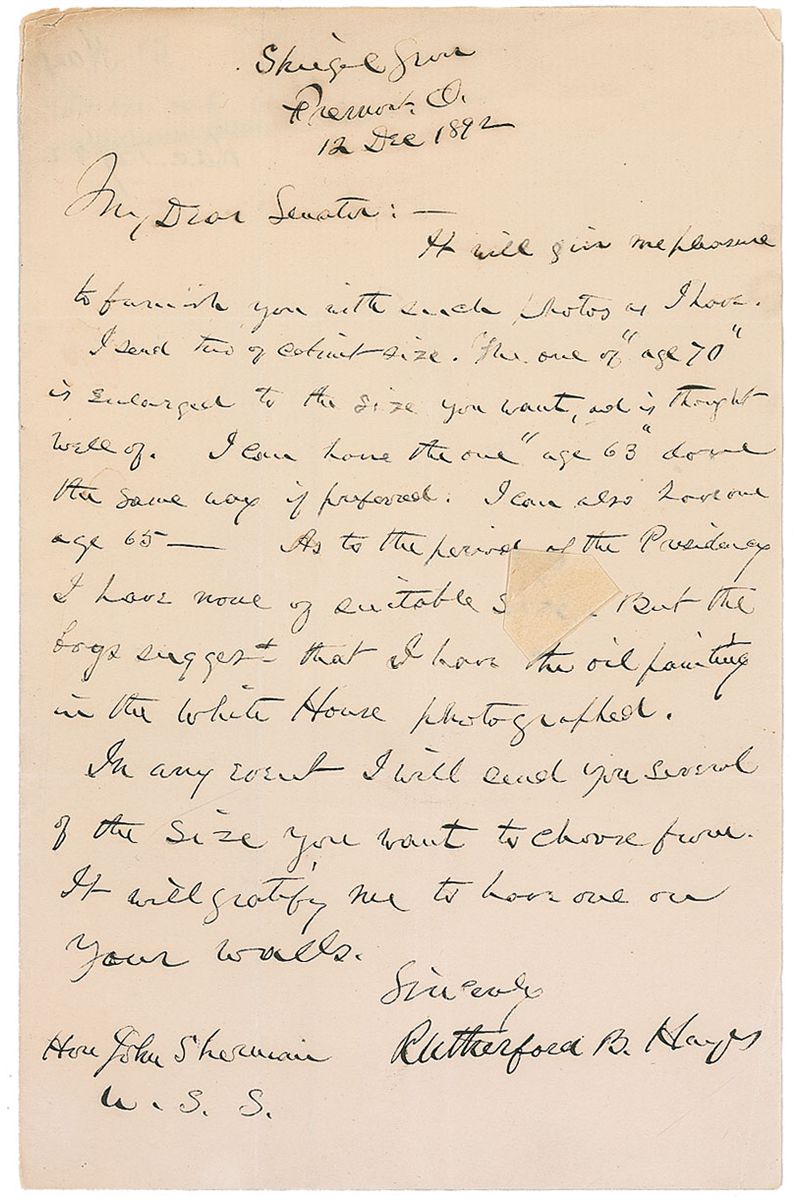 Spiegel Grove
Fremont, O.
12 Dec 1892
My Dear Senator: —
It will give me pleasure
to furnish you with such photos as I have.
I send two of cabinet size. The one of "age 70"
is enlarged to the size you want, and is thought
well of. I can have the one "age 63" done
the same way if preferred. I can also have one
age 65 — As to the period of the Presidency
I have none of suitable . But the
boys suggest that I have the oil painting
in the White House photographed.
In any event I will send you several
of the size you want to choose from.
It will gratify me to have one on
your walls.
Sincerely
Rutherford B. Hayes
Hon John Sherman
U. S. S.